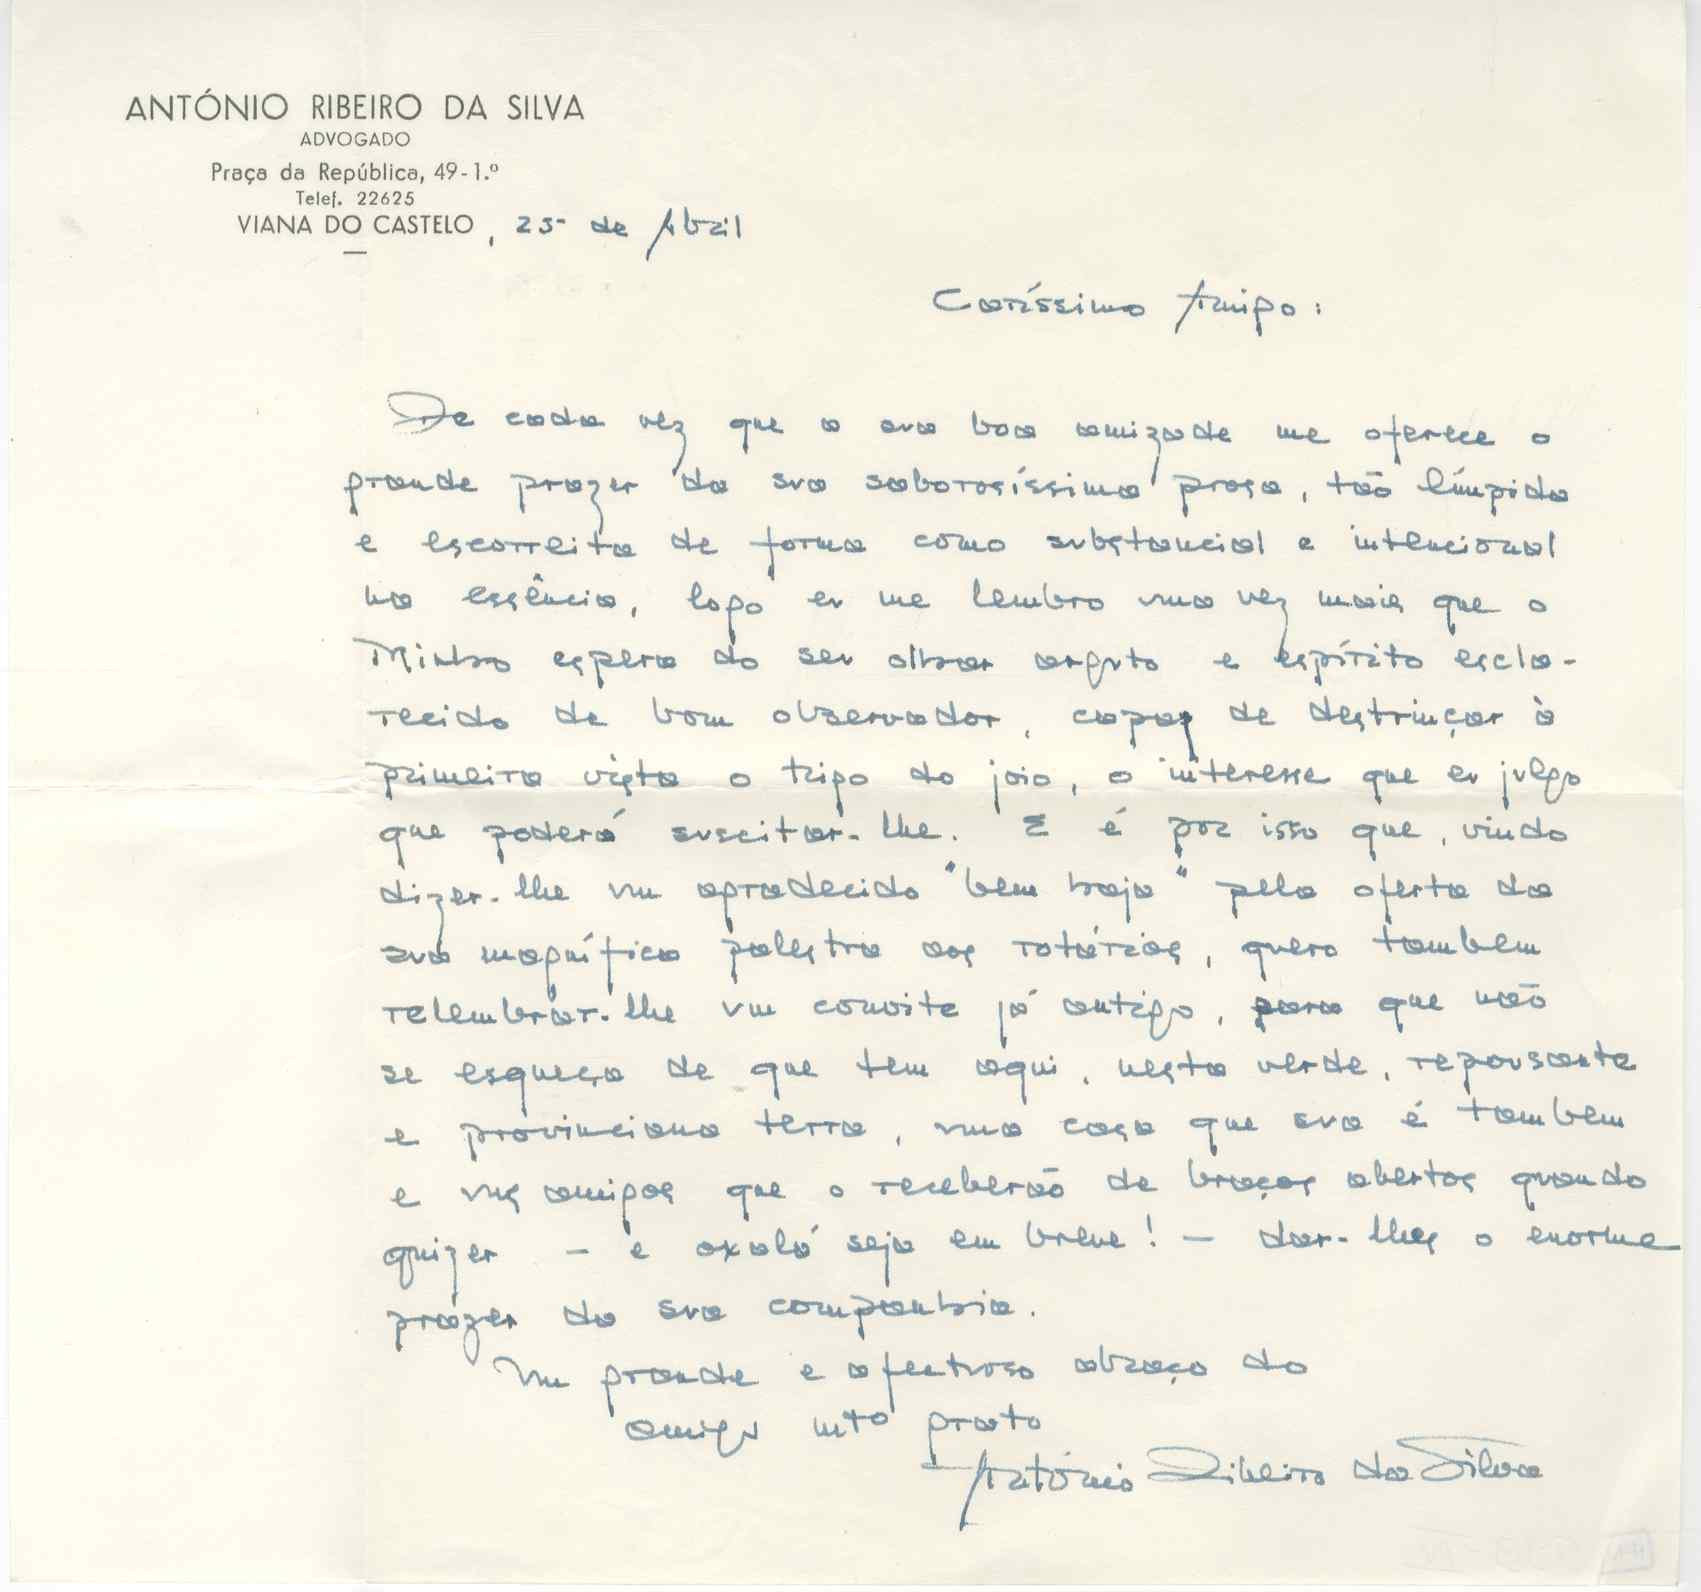 ANTÓNIO RIBEIRO DA SILVA
ADVOGADO
Praça da República, 49-1.º
Telef. 22625
VIANA DO CASTELO, 25 de Abril
Caríssimo Amigo:
De cada vez que a sua boa amizade me oferece o
grande prazer da sua saborosíssima prosa, tão límpida
e escorreita de forma como substancial e intencional
na essência, logo eu me lembro uma vez mais que o
Minho espera do seu olhar arguto e espírito escla-
recido de bom observador, capaz de destrinçar à
primeira vista o trigo do joio, o interesse que eu julgo
que poderá suscitar-lhe. E é por isso que, vindo
dizer-lhe um agradecido "bem haja" pela oferta da
sua magnífica palestra aos rotários, quero tambem
relembrar-lhe um convite já antigo, para que não
se esqueça de que tem aqui, nesta verde, repousante
e provinciana terra, uma casa que sua é tambem
e uns amigos que o receberão de braços abertos quando
quizer - e oxalá seja em breve! - dar-lhes o enorme
prazer da sua companhia.
Um grande e afectuoso abraço do
amigo mto grato
António Ribeiro da Silva